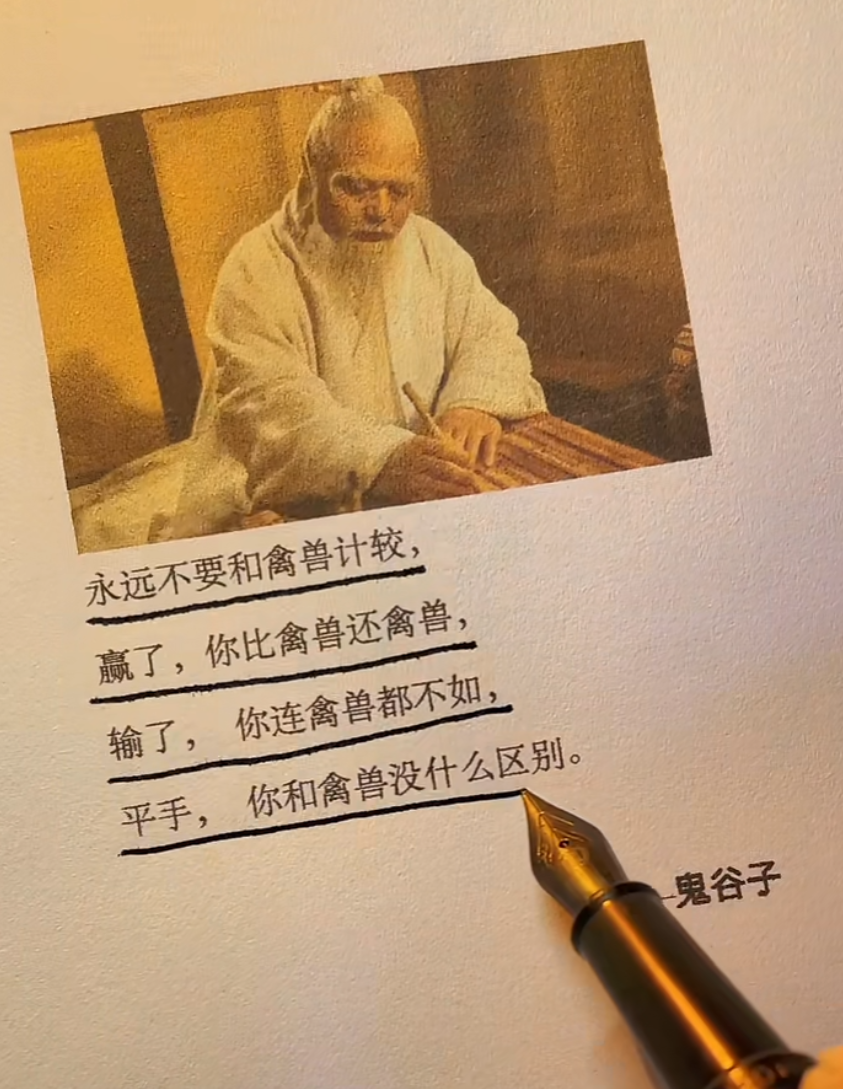 永远不要和禽兽计较，
赢了，你比禽兽还禽兽，
输了， 你连禽兽都不如，
平手， 你和禽兽没什么区别。
—鬼谷子